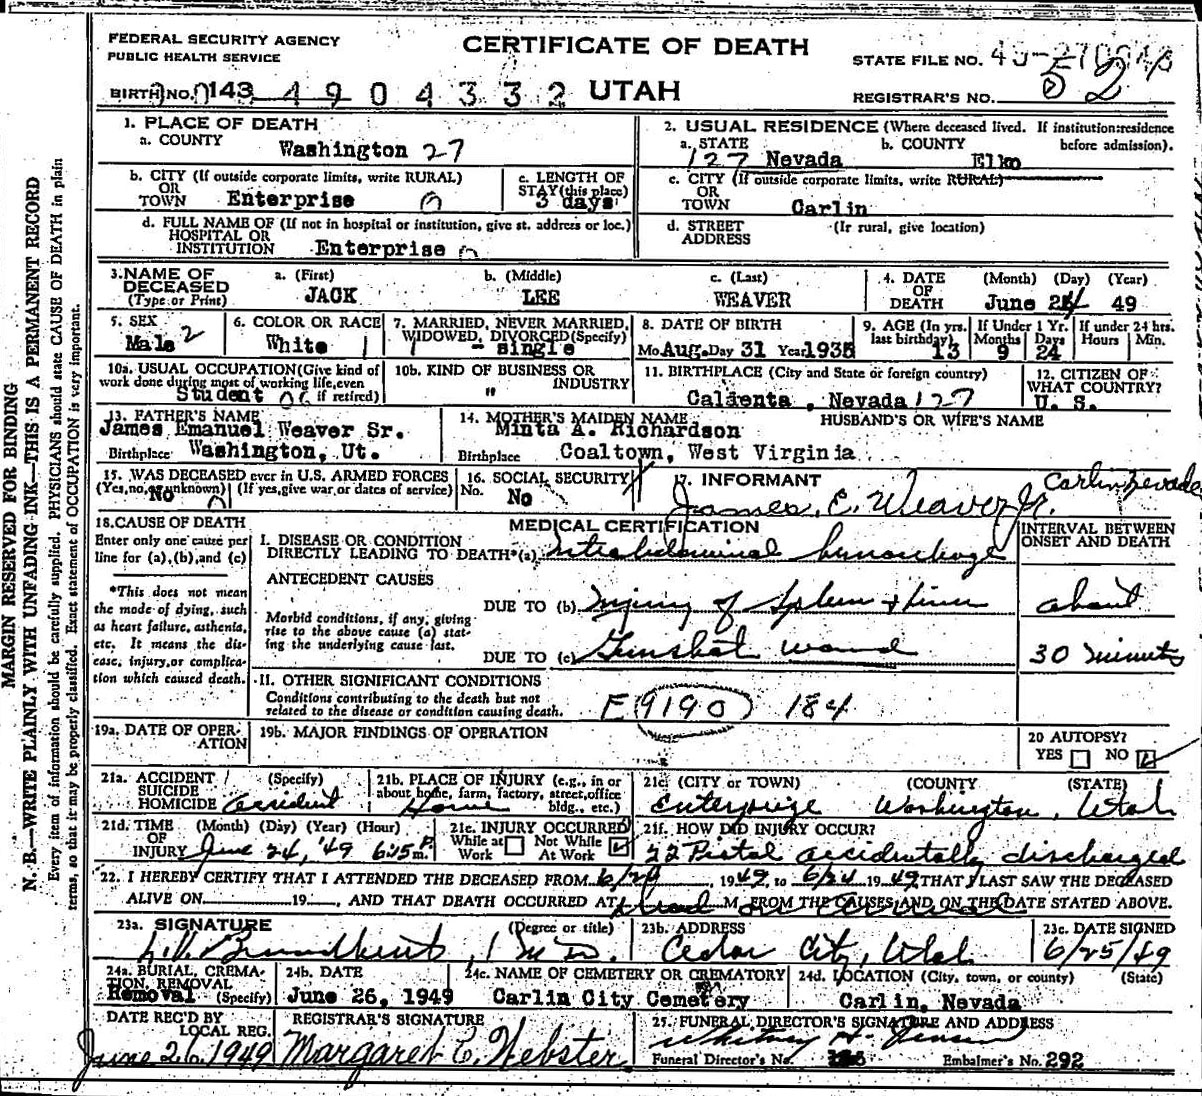 FEDERAL SECURITY AGENCY
PUBLIC HEALTH SERVICE
CERTIFICATE OF DEATH
STATE FILE NO.
BIRTH NO. 143 4904332 UTAH
REGISTRAR'S NO. 52
MARGIN RESERVED FOR BINDING
N. B.—WRITE PLAINLY WITH UNFADING INK—THIS IS A PERMANENT RECORD
Every item of information should be carefully supplied. PHYSICIANS should state CAUSE OF DEATH in plain
terms, so that it may be properly classified. Exact statement of OCCUPATION is very important.
1. PLACE OF DEATH
a. COUNTY
Washington 27
2. USUAL RESIDENCE (Where deceased lived. If institution:residence
before admission).
a. STATE b. COUNTY
127 Nevada Elko
b. CITY (If outside corporate limits, write RURAL)
OR
TOWN Enterprise
c. LENGTH OF
STAY (this place)
3 days
c. CITY (If outside corporate limits, write RURAL)
OR
TOWN Carlin
d. FULL NAME OF (If not in hospital or institution, give st. address or loc.)
HOSPITAL OR
INSTITUTION Enterprise
d. STREET (If rural, give location)
ADDRESS
3. NAME OF
DECEASED
(Type or Print)
a. (First) b. (Middle) c. (Last)
JACK LEE WEAVER
4. DATE (Month) (Day) (Year)
OF
DEATH June 24 49
5. SEX
Male 2
6. COLOR OR RACE
White 1
7. MARRIED, NEVER MARRIED,
WIDOWED, DIVORCED (Specify)
1 - single
8. DATE OF BIRTH
Mo. Aug. Day 31 Year 1935
9. AGE (In yrs.
last birthday)
13
If Under 1 Yr.
Months Days
9 24
If under 24 hrs.
Hours Min.
10a. USUAL OCCUPATION (Give kind of
work done during most of working life, even
if retired)
Student
10b. KIND OF BUSINESS OR
INDUSTRY
"
11. BIRTHPLACE (City and State or foreign country)
Calienta, Nevada 127
12. CITIZEN OF
WHAT COUNTRY?
U. S.
13. FATHER'S NAME
James Emanuel Weaver Sr.
Birthplace Washington, Ut.
14. MOTHER'S MAIDEN NAME
Minta A. Richardson
Birthplace Coaltown, West Virginia
HUSBAND'S OR WIFE'S NAME
15. WAS DECEASED ever in U.S. ARMED FORCES
(Yes, no, or unknown) (If yes, give war or dates of service)
No
16. SOCIAL SECURITY
No. No
17. INFORMANT
James E. Weaver Jr. Carlin Nevada
18. CAUSE OF DEATH
Enter only one cause per
line for (a), (b), and (c)
*This does not mean
the mode of dying, such
as heart failure, asthenia,
etc. It means the dis-
ease, injury, or complica-
tion which caused death.
MEDICAL CERTIFICATION
INTERVAL BETWEEN
ONSET AND DEATH
I. DISEASE OR CONDITION
DIRECTLY LEADING TO DEATH*(a) Intrabdominal hemorrhage
ANTECEDENT CAUSES
Morbid conditions, if any, giving
rise to the above cause (a) stat-
ing the underlying cause last.
DUE TO (b) Injury of Spleen + liver
DUE TO (c) Gunshot wound
about
30 minutes
II. OTHER SIGNIFICANT CONDITIONS
Conditions contributing to the death but not
related to the disease or condition causing death.
E 9190 184
19a. DATE OF OPER-
ATION
19b. MAJOR FINDINGS OF OPERATION
20 AUTOPSY?
YES NO
21a. ACCIDENT (Specify)
SUICIDE
HOMICIDE Accident
21b. PLACE OF INJURY (e.g., in or
about home, farm, factory, street, office
bldg., etc.)
Home
21c. (CITY or TOWN) (COUNTY) (STATE)
Enterprize Washington, Utah
21d. TIME (Month) (Day) (Year) (Hour)
OF
INJURY June 24, '49 6:25 P. m.
21e. INJURY OCCURRED
While at Work
Not While At Work
21f. HOW DID INJURY OCCUR?
22 Pistol accidentally discharged
22. I HEREBY CERTIFY THAT I ATTENDED THE DECEASED FROM 6/24, 1949, to 6/24 1949, THAT I LAST SAW THE DECEASED
ALIVE ON 19 , AND THAT DEATH OCCURRED AT dead on arrival M. FROM THE CAUSES AND ON THE DATE STATED ABOVE.
23a. SIGNATURE (Degree or title)
M.D.
23b. ADDRESS
Cedar City, Utah
23c. DATE SIGNED
6/25/49
24a. BURIAL, CREMA-
TION, REMOVAL
(Specify)
Removal
24b. DATE
June 26, 1949
24c. NAME OF CEMETERY OR CREMATORY
Carlin City Cemetery
24d. LOCATION (City, town, or county) (State)
Carlin, Nevada
DATE REC'D BY
LOCAL REG.
June 26 1949
REGISTRAR'S SIGNATURE
Margaret C. Webster
25. FUNERAL DIRECTOR'S SIGNATURE AND ADDRESS
Whitney H.
Funeral Director's No. Embalmer's No. 292